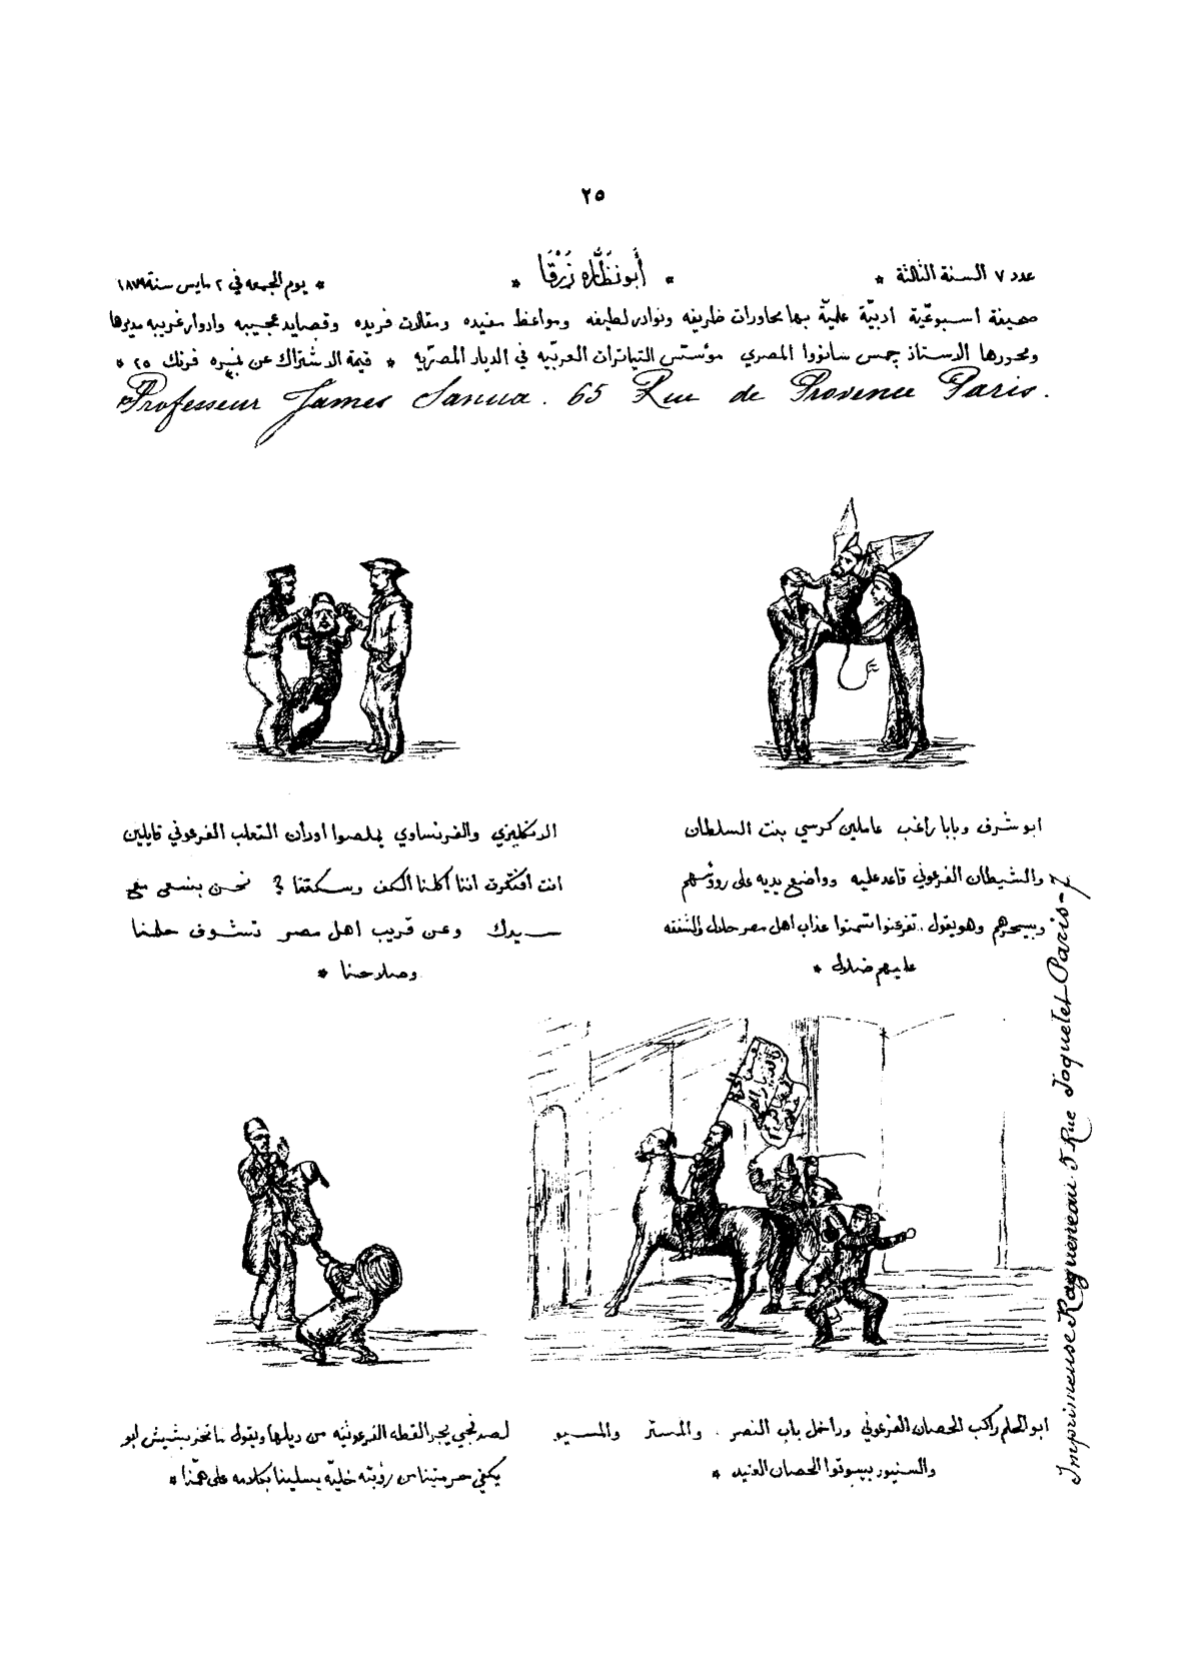 ٢٥
عدد ٧ السنة الثالثة * * أَبُو نَظَّارَه زَرْقَا * * يوم الجمعه في ٢ مايس سنة ١٨٧٩
صحيفة اسبوعيّة ادبيّة علميّة بها محاورات ظريفه ونوادر لطيفه ومواعظ مفيده ومقالات فريده وقصايد عجيبه وادوار غريبه مديرها
ومحررها الاستاذ جمس سانووا المصري مؤسّس التياترات العربيّه في الديار المصريّه * قيمة الاشتراك عن نمره فرنك ٢٥ *
Professeur James Sanua. 65 Rue de Provence Paris.
ابو شرف وبابا راغب عاملين كرسي بنت السلطان
والشيطان الفرعوني قاعد عليه وواضع يديه على رووسهم
وبيسحرهم وهو يقول .. تفرعنوا عذاب اهل مصر حلال والشفقه
عليهم ضلال *
الانكليزي والفرنساوي يملصوا اودان التعلب الفرعوني قايلين
انت افتكرت اننا اكلنا الكف وسكتنا ? نحن بنسعى مع
سيدك وعن قريب اهل مصر تشوف حلمنا
وصلاحنا *
ابو الحلم راكب الحصان الفرعوني وداخل باب النصر . والمستر والمسيو
والسنيور بيسوقوا الحصان العنيد *
لصدقجي يجر القطه الفرعونيه من ديلها ويقول ابو
يكفي حرمتينا من رؤيته خليّه يسلينا بكلامه على همّنا *
Imprimeuse Ragueneau 5 Rue Joquelet Paris-7